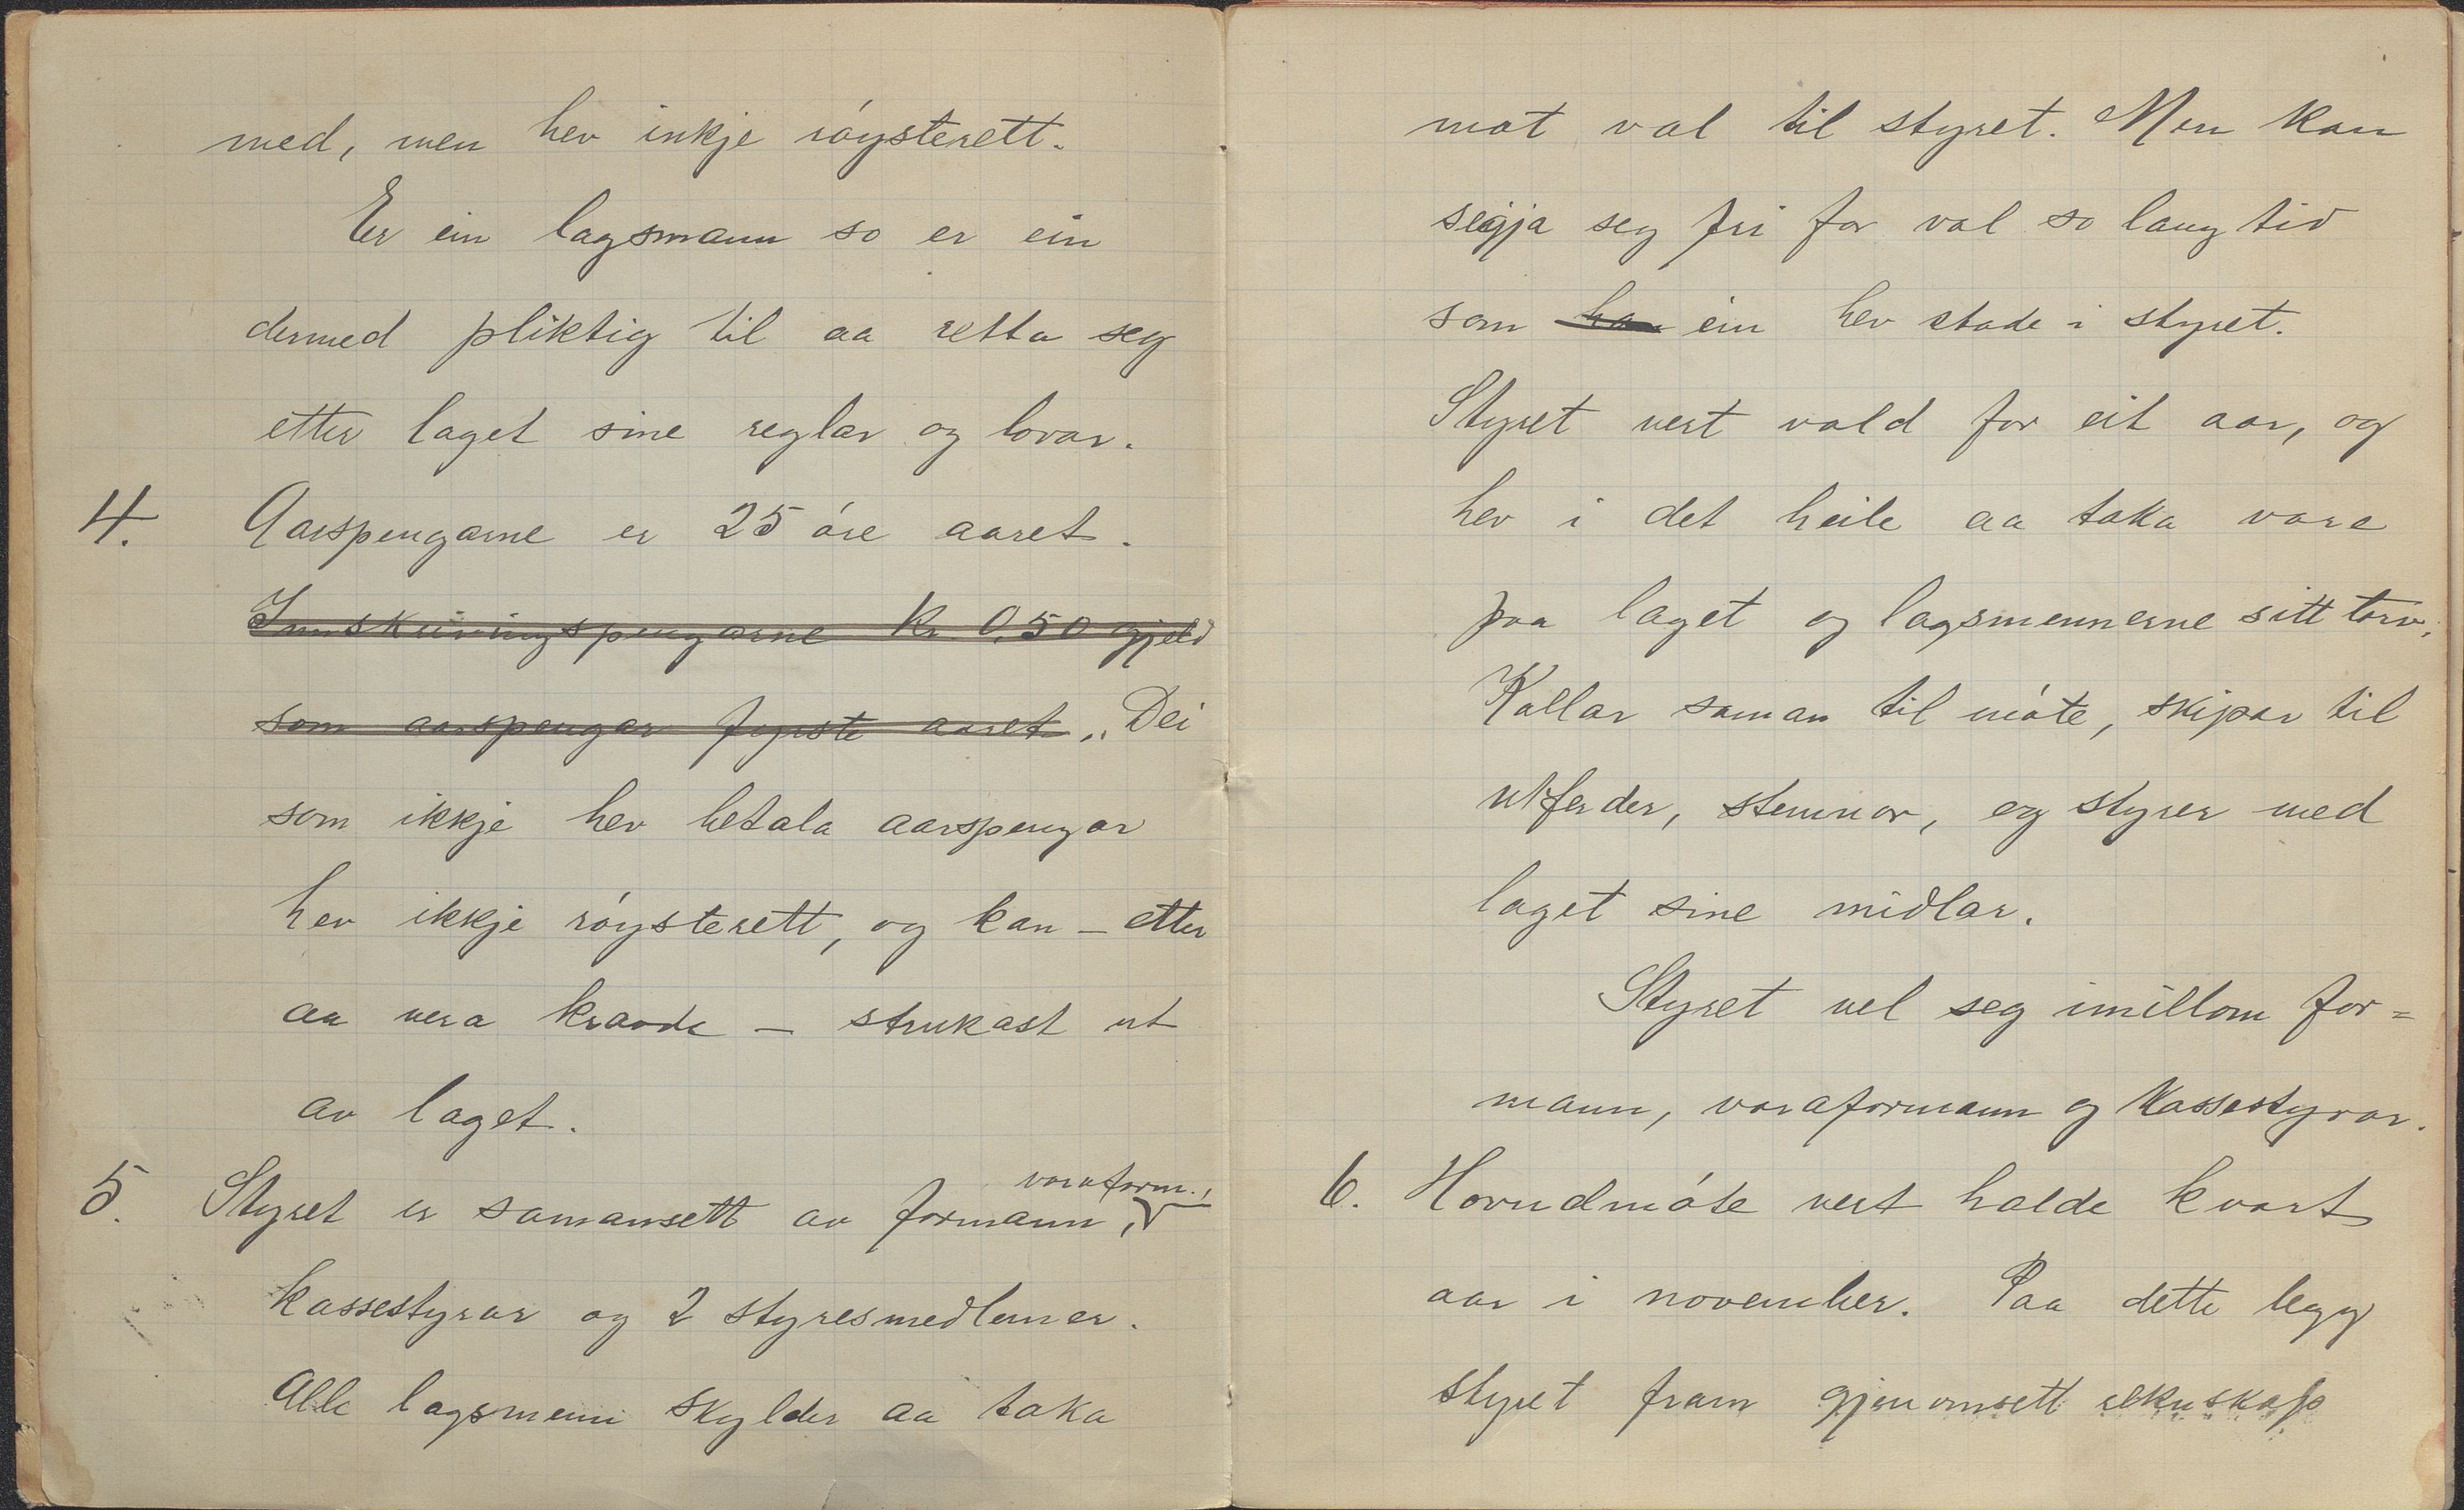 med, men hev inkje róysterett.
Er ein lagsmann so er ein
dermed pliktig til aa retta seg
etter laget sine reglar og lovar.
4. Aarspengarne er 25 óre aaret.
Innskrivingspengarne Kr 0,50 gjeld
som aarspengar fyrste aaret. Dei
som ikkje hev betala aarspengar
hev ikkje róysterett, og kan – etter
aa vera kravde – strukast ut
av laget.
varaform.,
5. Styret er samansett av formann,
kassestyrar og 2 styresmedlemer.
Alle lagsmenn skylder aa taka
mot val til styret. Men kan
segja seg fri for val so lang tid
som han ein hev stade i styret.
Styret vert vald for eit aar, og
hev i det heile aa taka vare
paa laget og lagsmennerne sitt tarv.
Kallar saman til móte, skipar til
utferder, stemnor, og styrer med
laget sine midlar.
Styret vel seg imillom for=
mann, varaformann og kassestyrar.
6. Hovudmóte vert halde kvart
aar i november. Paa dette legg
styret fram gjenomsett rekneskap